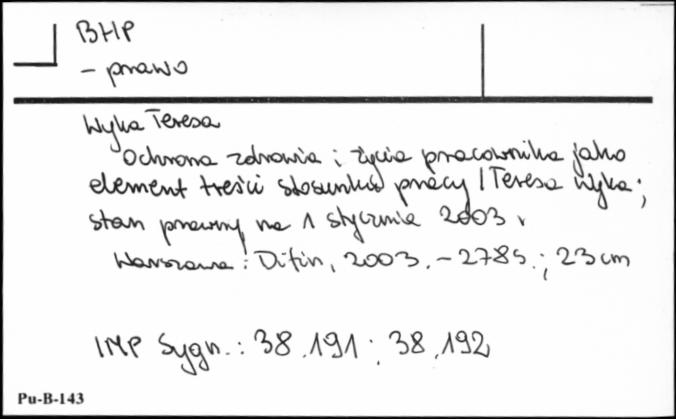 BHP
- prawo
Wyka Teresa
Ochrona zdrowia i życia pracownika jako
element treści stosunku pracy / Teresa Wyka;
stan prawny na 1 stycznia 2003 r.
Warszawa: Difin, 2003. - 278 s.; 23 cm
IMP Sygn.: 38.191; 38.192
Pu-B-143